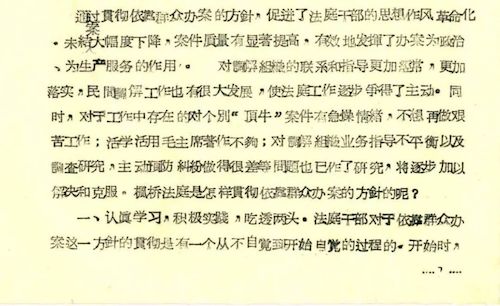 通过貫彻依靠群众办案的方針,促进了法庭干部的思想作风革命化
。未結案大幅度下降,案件质量有显著提高。有效地发揮了办案为政治
、为生产服务的作用。 对調解組織的联系和指导更加經常,更加
落实,民間調解工作也有很大发展,使法庭工作逐步爭得了主动。同
时,对于工作中存在的对个別“頂牛”案件有急燥情緒,不想再做艰
苦工作;活学活用毛主席著作不夠;对調解組織业务指导不平衡以及
調查研究,主动預防糾紛做得很差等問題也已作了研究,将逐步加以
解决和克服。楓桥法庭是怎样貫彻依靠群众办案的方針的呢?
一、认眞学习,积极实踐,吃透两头。法庭干部对于依靠群众办
案这一方針的貫彻是有一个从不自觉到开始自觉的过程的。开始时,